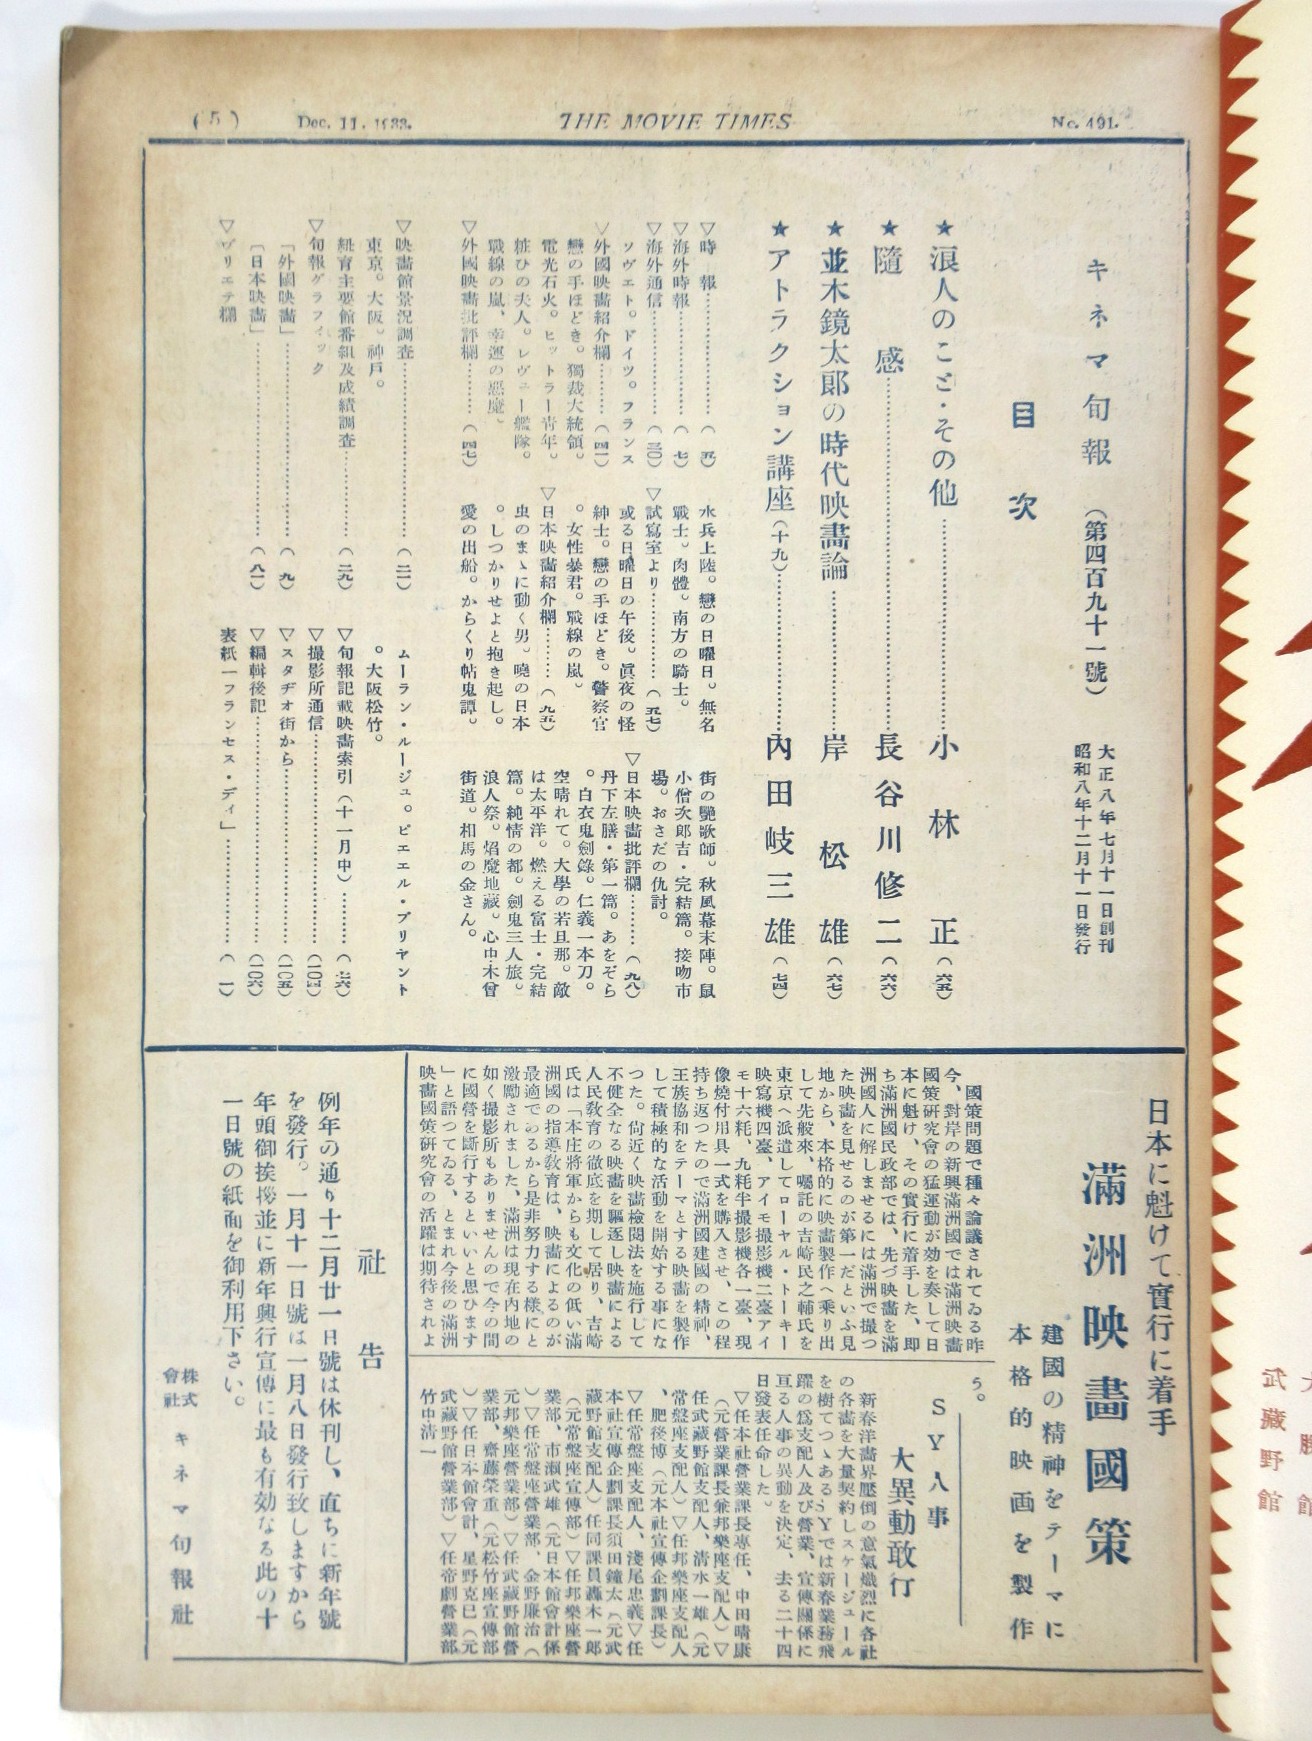 (5)
Dec. 11. 1933.
THE MOVIE TIMES
No. 491.
キネマ旬報 (第四百九十一號)
大正八年七月十一日創刊
昭和八年十二月十一日發行
目次
★浪人のこと・その他…………小林正(六五)
★隨感…………長谷川修二(六六)
★並木鏡太郎の時代映畵論…………岸松雄(六七)
★アトラクション講座(十九)…………內田岐三雄(七四)
▽時報…………(五)
▽海外時報…………(七)
▽海外通信…………(三〇)
ソヴェト。ドイツ。フランス
▽外國映畵紹介欄…………(四一)
戀の手ほどき。獨裁大統領。
電光石火。ヒットラー靑年。
粧ひの夫人。レヴュー艦隊。
戰線の嵐、幸運の惡魔。
▽外國映畵批評欄…………(四七)
水兵上陸。戀の日曜日。無名
戰士。肉體。南方の騎士。
▽試寫室より…………(五七)
或る日曜日の午後。眞夜の怪
紳士。戀の手ほどき。警察官
。女性暴君。戰線の嵐。
▽日本映畵紹介欄…………(九五)
虫のまゝに動く男。曉の日本
。しつかりせよと抱き起し。
愛の出船。からくり帖鬼譚。
街の艷歌師。秋風幕末陣。鼠
小僧次郎吉・完結篇。接吻市
場。おさだの仇討。
▽日本映畵批評欄…………(九八)
丹下左膳・第一篇。あをぞら
。白衣鬼劍錄。仁義一本刀。
空晴れて。大學の若旦那。敵
は太平洋。燃える富士・完結
篇。純情の都。劍鬼三人旅。
浪人祭。焰魔地藏。心中木曾
街道。相馬の金さん。
▽映畵館景況調査…………(二一)
東京。大阪。神戶。
紐育主要館番組及成績調査…………(二九)
▽旬報グラフィック
「外國映畵」…………(九)
「日本映畵」…………(八一)
▽ヴリエテ欄
ムーラン・ルージュ。ピエエル・ブリヤント
。大阪松竹。
▽旬報記載映畵索引(十一月中)…………(七六)
▽撮影所通信…………(一〇四)
▽スタヂオ街から…………(一〇五)
▽編輯後記…………(一〇六)
表紙―フランセス・ディ」…………(一)
日本に魁けて實行に着手
滿洲映畵國策
建國の精神をテーマに
本格的映画を製作
國策問題で種々論議されてゐる昨
今、對岸の新興滿洲國では滿洲映畵
國策硏究會の猛運動が効を奏して日
本に魁け、その實行に着手した、即
ち滿洲國民政部では、先づ映畵を滿
洲國人に解しませるには滿洲で撮つ
た映畵を見せるのが第一だといふ見
地から、本格的に映畵製作へ乘り出
して先般來、囑託の吉崎民之輔氏を
東京へ派遣してローヤル・トーキー
映寫機四臺、アイモ撮影機二臺アイ
モ十六粍、九粍半撮影機各一臺、現
像燒付用具一式を購入させ、この程
持ち返つたので滿洲國建國の精神、
王族協和をテーマとする映畵を製作
して積極的な活動を開始する事にな
つた。尙近く映畵檢閱法を施行して
不健全なる映畵を驅逐し映畵による
人民敎育の徹底を期して居り、吉崎
氏は「本庄將軍からも文化の低い滿
洲國の指導敎育は、映畵によるのが
最適であるから是非努力する樣にと
激勵されました、滿洲は現在內地の
如く撮影所もありませんので今の間
に國營を斷行するといいと思ひます
」と語つてゐる、とまれ今後の滿洲
映畵國策硏究會の活躍は期待されよ
う。
SY人事
大異動敢行
新春洋畵界壓倒の意氣熾烈に各社
の各畵を大量契約しスケージュール
を樹てつゝあるSYでは新春業務飛
躍の爲支配人及び營業、宣傳關係に
亙る人事の異動を決定、去る二十四
日發表任命した。
▽任本社營業課長專任、中田晴康
(元營業課長兼邦樂座支配人)▽
任武藏野館支配人、淸水一雄(元
常盤座支配人)▽任邦樂座支配人
、肥後博(元本社宣傳企劃課長)
▽任常盤座支配人、淺尾忠義▽任
本社宣傳企劃課長須田鐘太(元武
藏野館支配人)任同課員轟木一郎
(元常盤座宣傳部)▽任邦樂座營
業部、市瀨武雄(元日本館會計係
)▽任常盤座營業部、金野廉治(
元邦樂座營業部)▽任武藏野館營
業部、齋藤榮重(元松竹座宣傳部
)▽任日本館會計、星野克巳(元
武藏野館營業部)▽任帝劇營業部
竹中淸一
社告
例年の通り十二月廿一日號は休刊し、直ちに新年號
を發行。一月十一日號は一月八日發行致しますから
年頭御挨拶並に新年興行宣傳に最も有効なる此の十
一日號の紙面を御利用下さい。
株式會社 キネマ旬報社
武藏野館